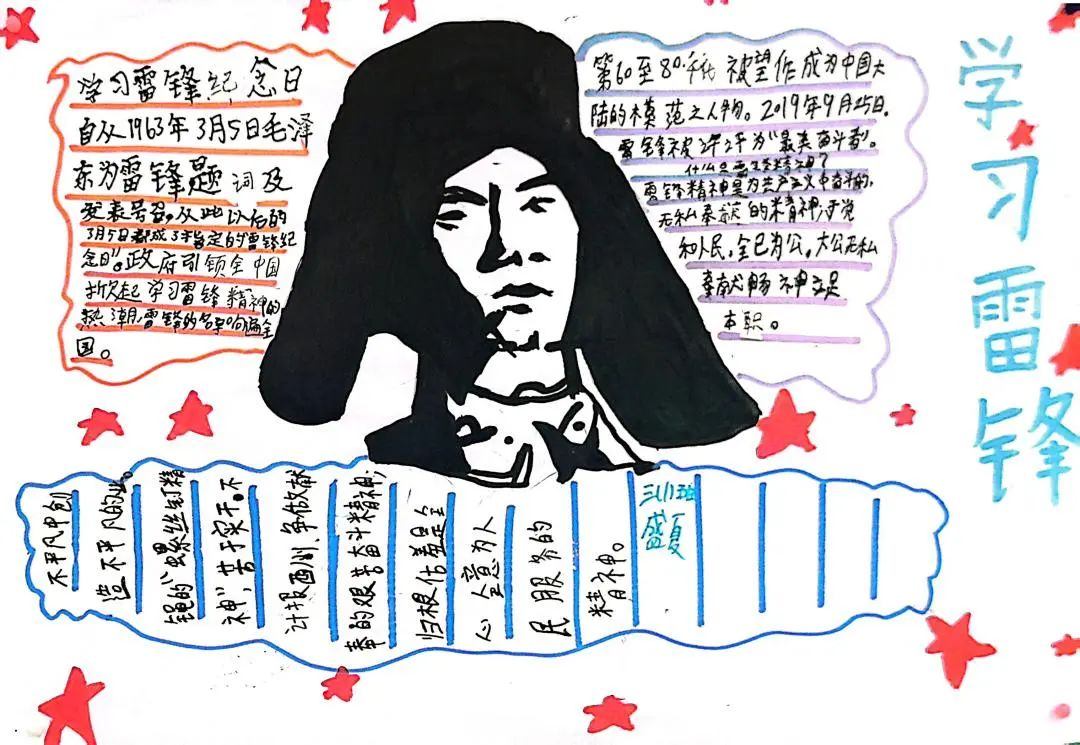 学习雷锋
学习雷锋纪念日
自从1963年3月5日毛泽
东为雷锋题词及
发表号召,从此以后的
3月5日都成了指定的“雷锋纪
念日”。政府引领全中国
掀起学习雷锋精神的
热潮,雷锋的名字响遍全
国。
第60至80年代被塑作成为中国大
陆的模范之人物。2019年9月25日.
雷锋被评为“最美奋斗者”。
什么是雷锋精神?
雷锋精神是为共产主义中奋斗的,
无私奉献的精神;于党
和人民,全已为公,大公无私
奉献 神立足
本职。
不平凡中创
造不平凡的业。
锰的“螺丝钉精
神”,甘于实干。不
计报酬,争做奉献
奉的艰苦奋斗精神;
归根估盖是全
心全意为人
民服务的
精神。
三(1)班
盛夏